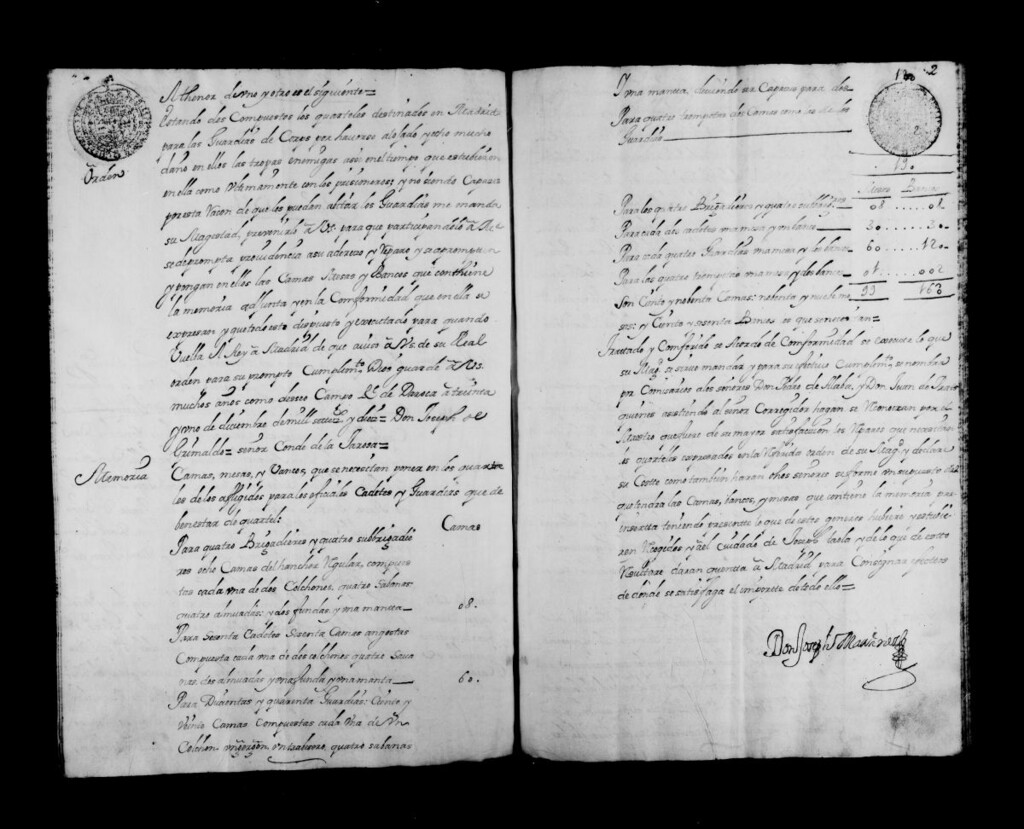 Al thenor de uno y otro es el siguiente=
Orden
Estando descompuestos los quarteles destinados en Madrid
para las Guardias de Corps por haverse alojado y echo mucho
daño en ellos las tropas enemigas assi en el tiempo que estubieron
en ella como Ultimamente con los prisioneros; y no siendo Capazes
por esta razon de que los puedan abitar las Guardias me manda
su Magestad, prevenir a Vs. para que participandolo a Md
se de prompta providencia a su aderezo y reparo y se compongan
y pongan en ellos las Camas Mesas y Bancos que contthiene
la memoria adjunta y en la Comformidad que en ella se
expresan y quando este dispuesto y executado para quando
Vuelva el Rey a Madrid de que aviso a Vs. de su Real
orden para su prompto Cumplimto Dios guarde a Vs.
muchos años como deseo Campo Rl de Pareca a treinta
y uno de diciembre de mill settezs y diez= Don Joseph de
Grimaldo= señor Conde de la Jarosa=
Memoria
Camas, mesas, y Vancos, que se necesitan poner en los quarte
les de los afligidos para los oficiales Cadetes y Guardias que de
ben estar de quartel:
Camas
Para quatro Brigadieres y quatro subbrigadie
res ocho Camas del hanchor Regular, compues
tas cada una de dos Colchones, quatro sabanas
quatro almuadas: y dos fundas, y una manta 08.
Para sesenta Cadetes sesenta Camas angostas
Compuesta cada una de dos colchones quatro sava
nas dos almuadas y una funda y una manta 60.
Para Ducientas y quarenta Guardias: Ciento y
Veinte Camas Compuestas cada Una de Un
Colchon, un gergon, un trabesero, quatro sabanas
2
Y una manta, deviendo ser Capazes para dos
Para quatro trompetas dos Camas como las de las
Guardias
190
Mesas Bancos
Para los quatro Brigadieres y quatro subbrigs 08 ..... 08
Para cada dos cadetes una mesa y un banco 30 ..... 30
Para cada quatro Guardias una mesa y dos bancos 60 ..... 120
Para los quatro trompetas una mesa y dos bancos 01 ..... 002
Son Ciento y nobenta Camas: nobenta y nueve me 99 160
sas: y Ciento y sesenta Bancos los que se necesitan=
Tratado y Comferido se Acordo de Comformidad se execute lo que
su Magd se sirve mandar y para su efectivo Cumplimto se nombra
por Comisarios a los señores Don Pedro de Alaba, y Don Juan de
quienes asistiendo al señor Corregidor hagan se reconozcan por el
Maestro que fuere de su mayor satisfaccion los reparos que necesitan
los quarteles expresados en la referida orden de su Magd y declare
su Coste como tambien haran dhos señores se forme
que tendran las Camas, bancos, y mesas que contiene la memoria pre
inserta teniendo presente lo que de estos generos hubiere y estubie
ren recogidos y al cuidado de Joseph y de lo que de todo
resultare daran quenta a Madrid para Consignar efectos
de donde se satisfaga el importe de todo ello=
Don Joseph Martinez